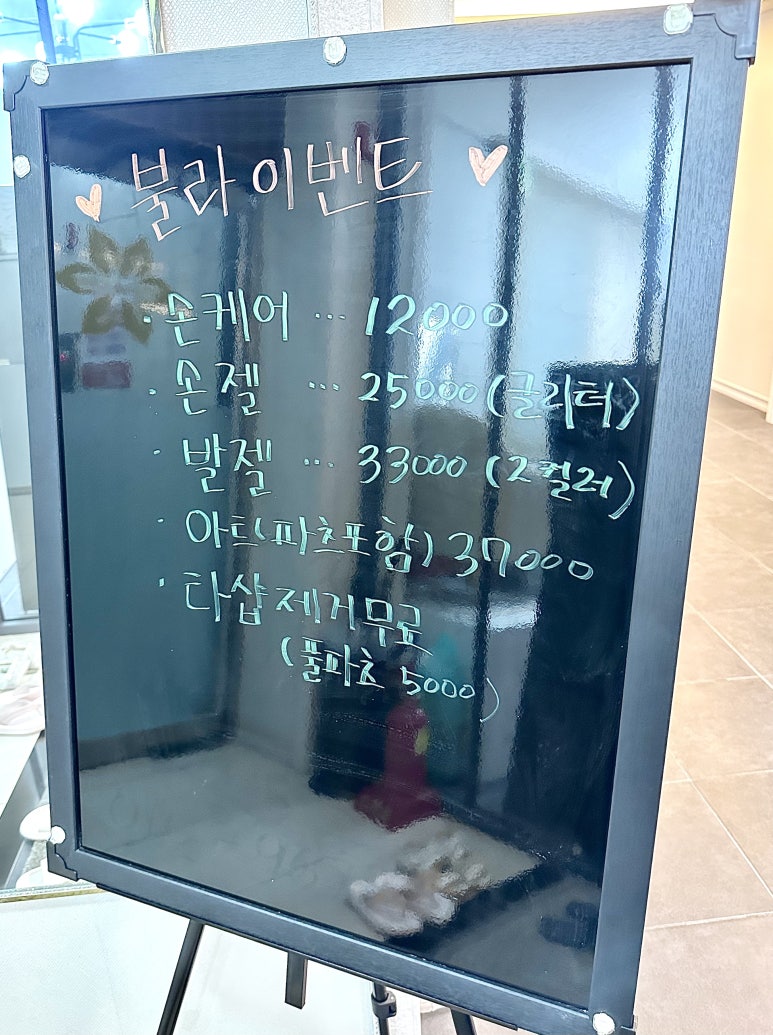 불라이벤트
· 손케어 ... 12000
· 손젤 ... 25000 (글리터)
· 발젤 ... 33000 (2컬러)
· 아트(파츠포함) 37000
· 타샵제거무료
(풀파츠 5000)